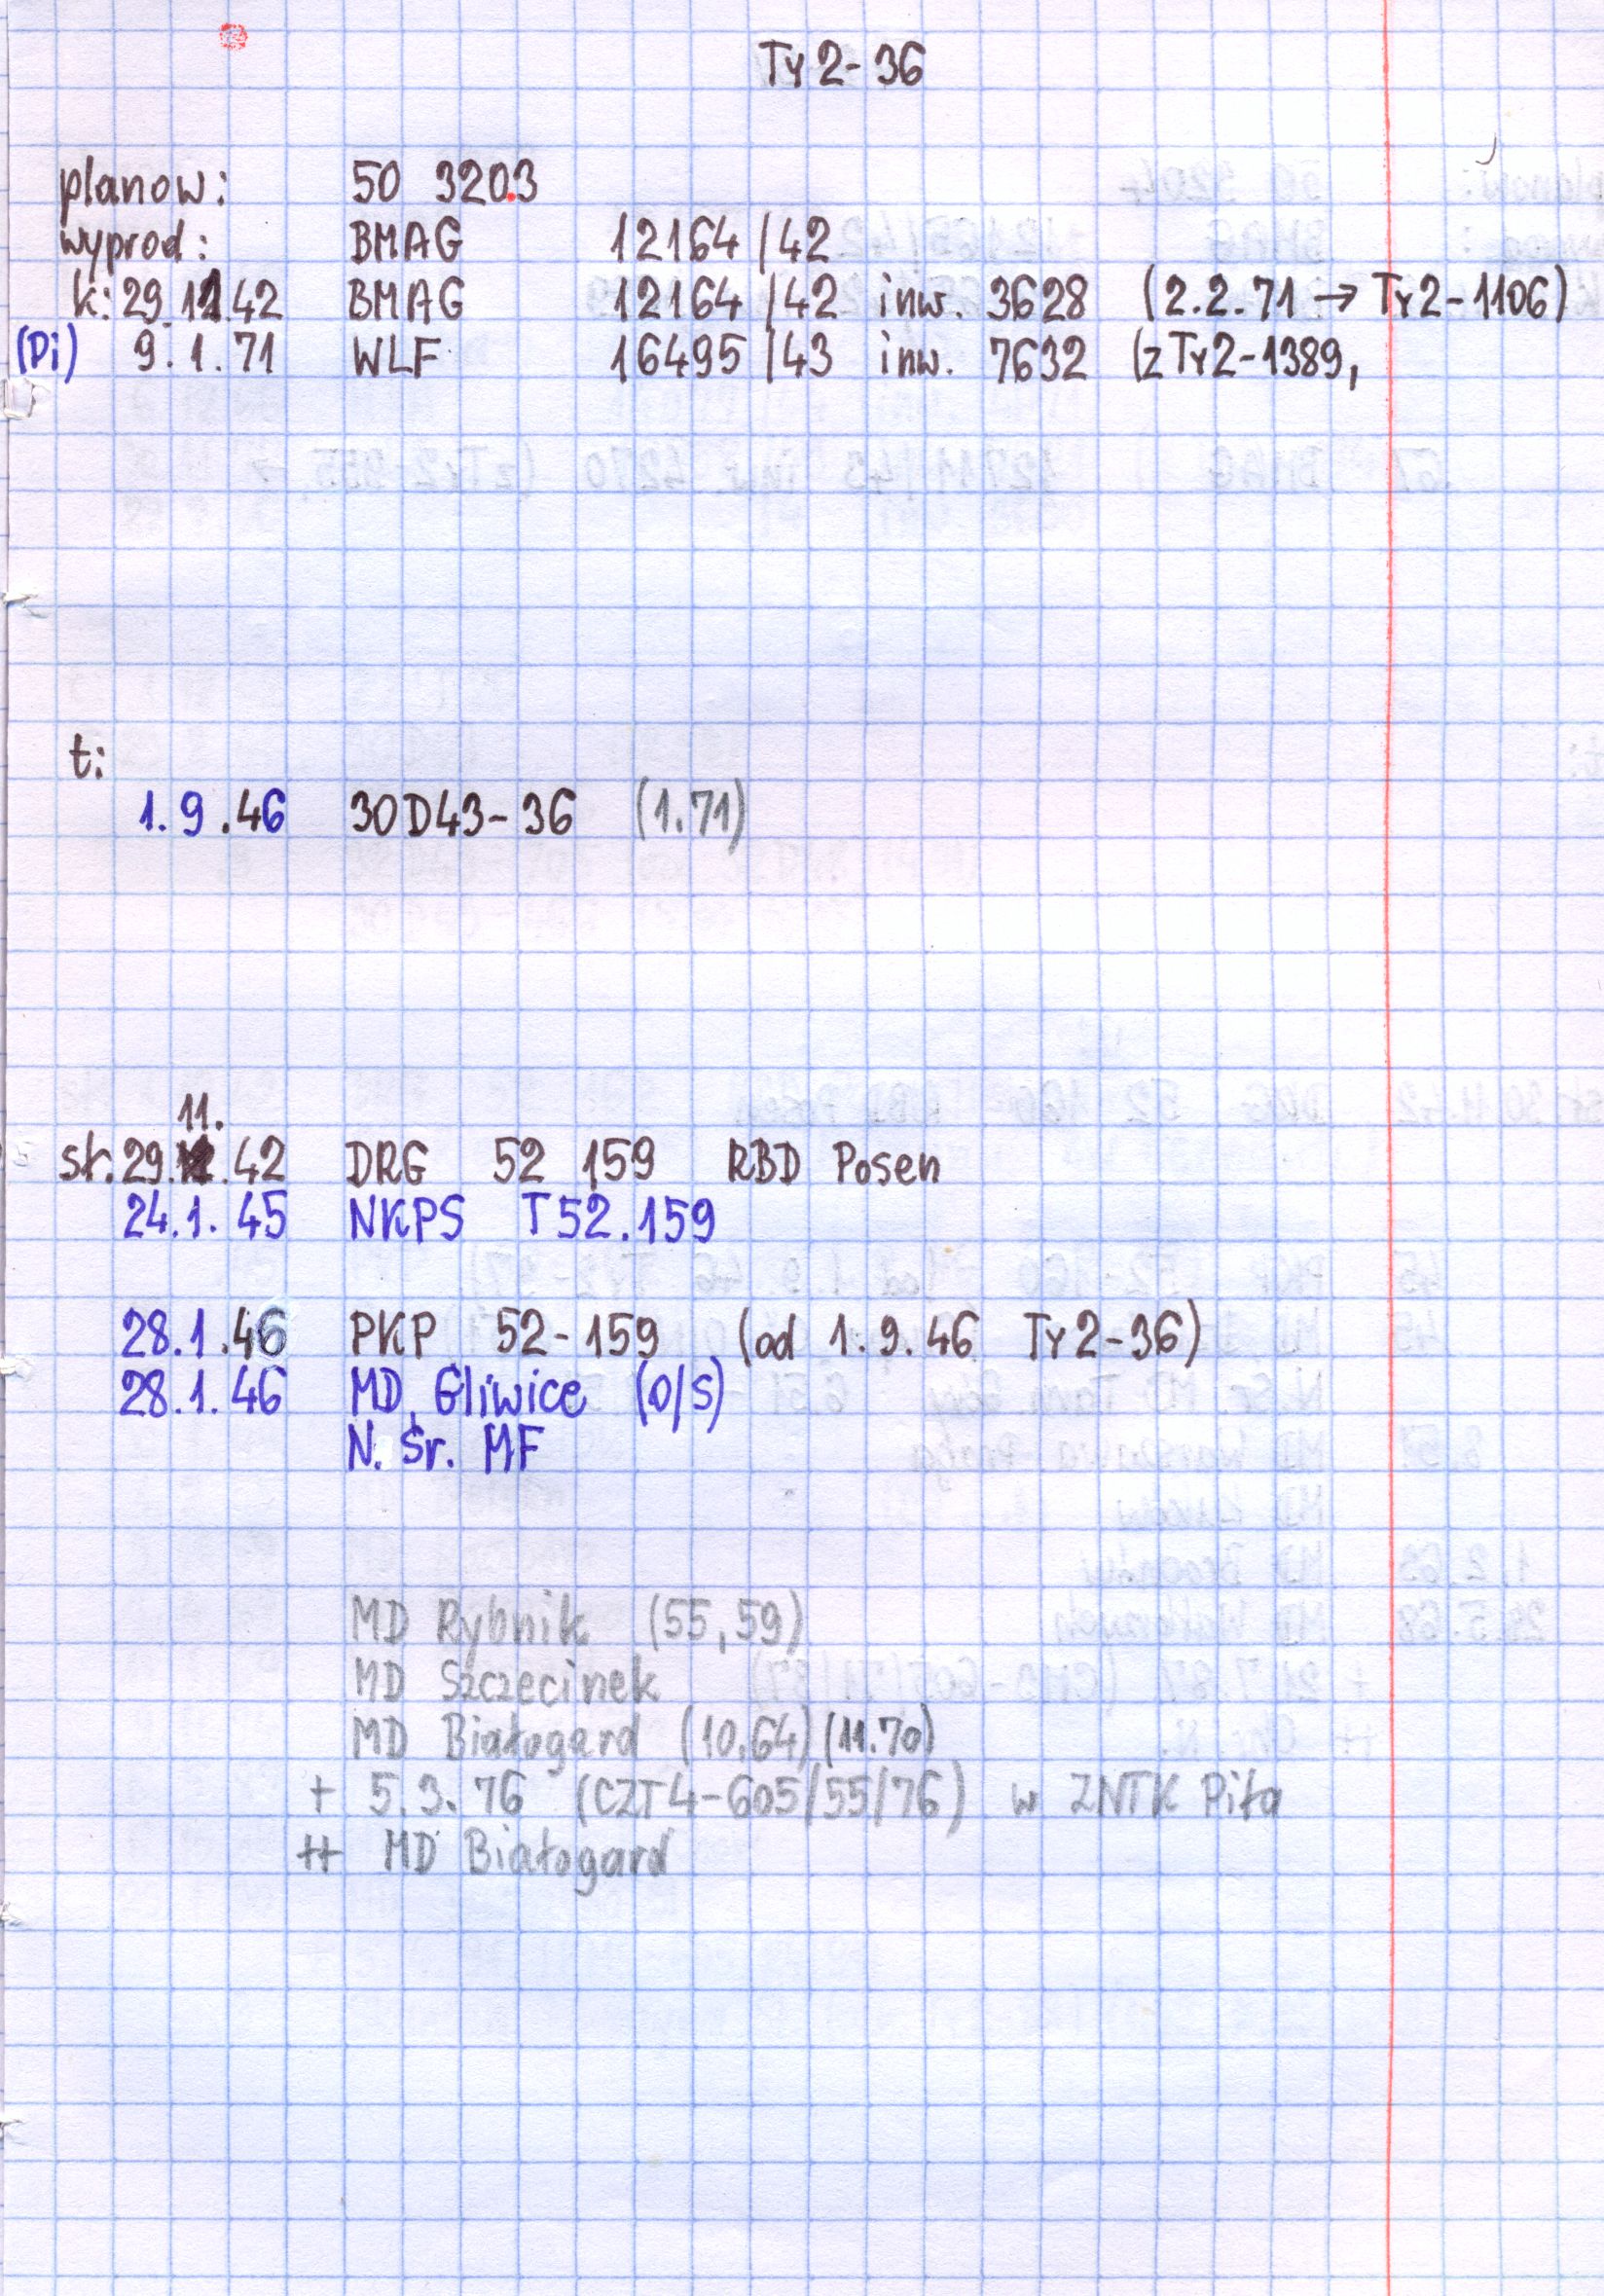 Ty2-36
planow: 50 3203
wyprod: BMAG 12164/42
k: 29.11.42 BMAG 12164/42 inw. 3628 (2.2.71 → Ty2-1106)
(Pi) 9.1.71 WLF 16495/43 inw. 7632 (z Ty2-1389,
t:
1.9.46 30D43-36 (1.71)
11.
st. 29. .42 DRG 52 159 RBD Posen
24.1.45 NKPS T52.159
28.1.46 PKP 52-159 (od 1.9.46 Ty2-36)
28.1.46 MD Gliwice (O/S)
N. Śr. MF
MD Rybnik (55,59)
MD Szczecinek
MD Białogard (10.64) (11.70)
+ 5.3.76 (CZT4-605/55/76) w ZNTK Piła
++ MD Białogard